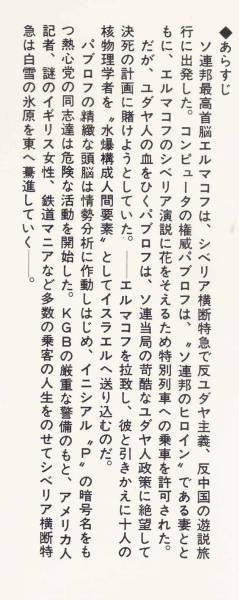 ◆あらすじ
　ソ連邦最高首脳エルマコフは、シベリア横断特急で反ユダヤ主義、反中国の遊説旅
行に出発した。コンピュータの権威パブロフは、〝ソ連邦のヒロイン〟である妻とと
もに、エルマコフのシベリア演説に花をそえるため特別列車への乗車を許可された。
　だが、ユダヤ人の血をひくパブロフは、ソ連当局の苛酷なユダヤ人政策に絶望して
決死の計画に賭けようとしていた。――エルマコフを拉致し、彼と引きかえに十人の
核物理学者を〝水爆構成人間要素〟としてイスラエルへ送り込むのだ。
　パブロフの精緻な頭脳は情勢分析に作動しはじめ、イニシアル〝P〟の暗号名をも
つ熱心党の同志達は危険な活動を開始した。KGBの厳重な警備のもと、アメリカ人
記者、謎のイギリス女性、鉄道マニアなど多数の乗客の人生をのせてシベリア横断特
急は白雪の氷原を東へ驀進していく――。